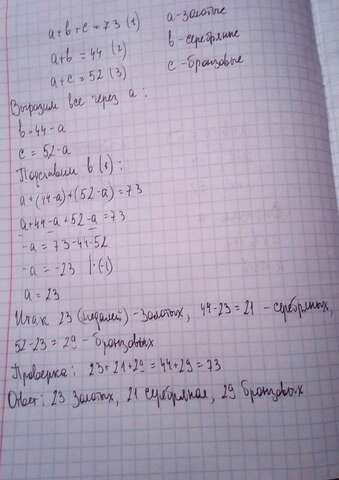 a+b+c=73 (1) a-золотые
a+b=44 (2) b-серебряные
a+c=52 (3) c-бронзовые
Выразим все через a:
b=44-a
c=52-a
Подставим в (1):
a+(44-a)+(52-a)=73
a+44-a+52-a=73
-a=73-44-52
-a=-23 |·(-1)
a=23
Итак 23 (медалей)-золотых, 44-23=21 - серебряных,
52-23=29-бронзовых
Проверка: 23+21+29=44+29=73
Ответ: 23 золотых, 21 серебряная, 29 бронзовых